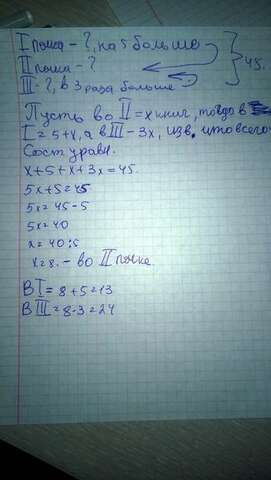 I полка - ?, на 5 больше
II полка - ?
III - ?, в 3 раза больше
45.
Пусть во II = x книг, тогда в
I = 5+x, а в III - 3x, изв. что всего
Сост. уравн.
x+5+x+3x=45.
5x+5=45
5x=45-5
5x=40
x=40:5
x=8. - во II полке.
В I = 8+5=13
В III = 8·3=24